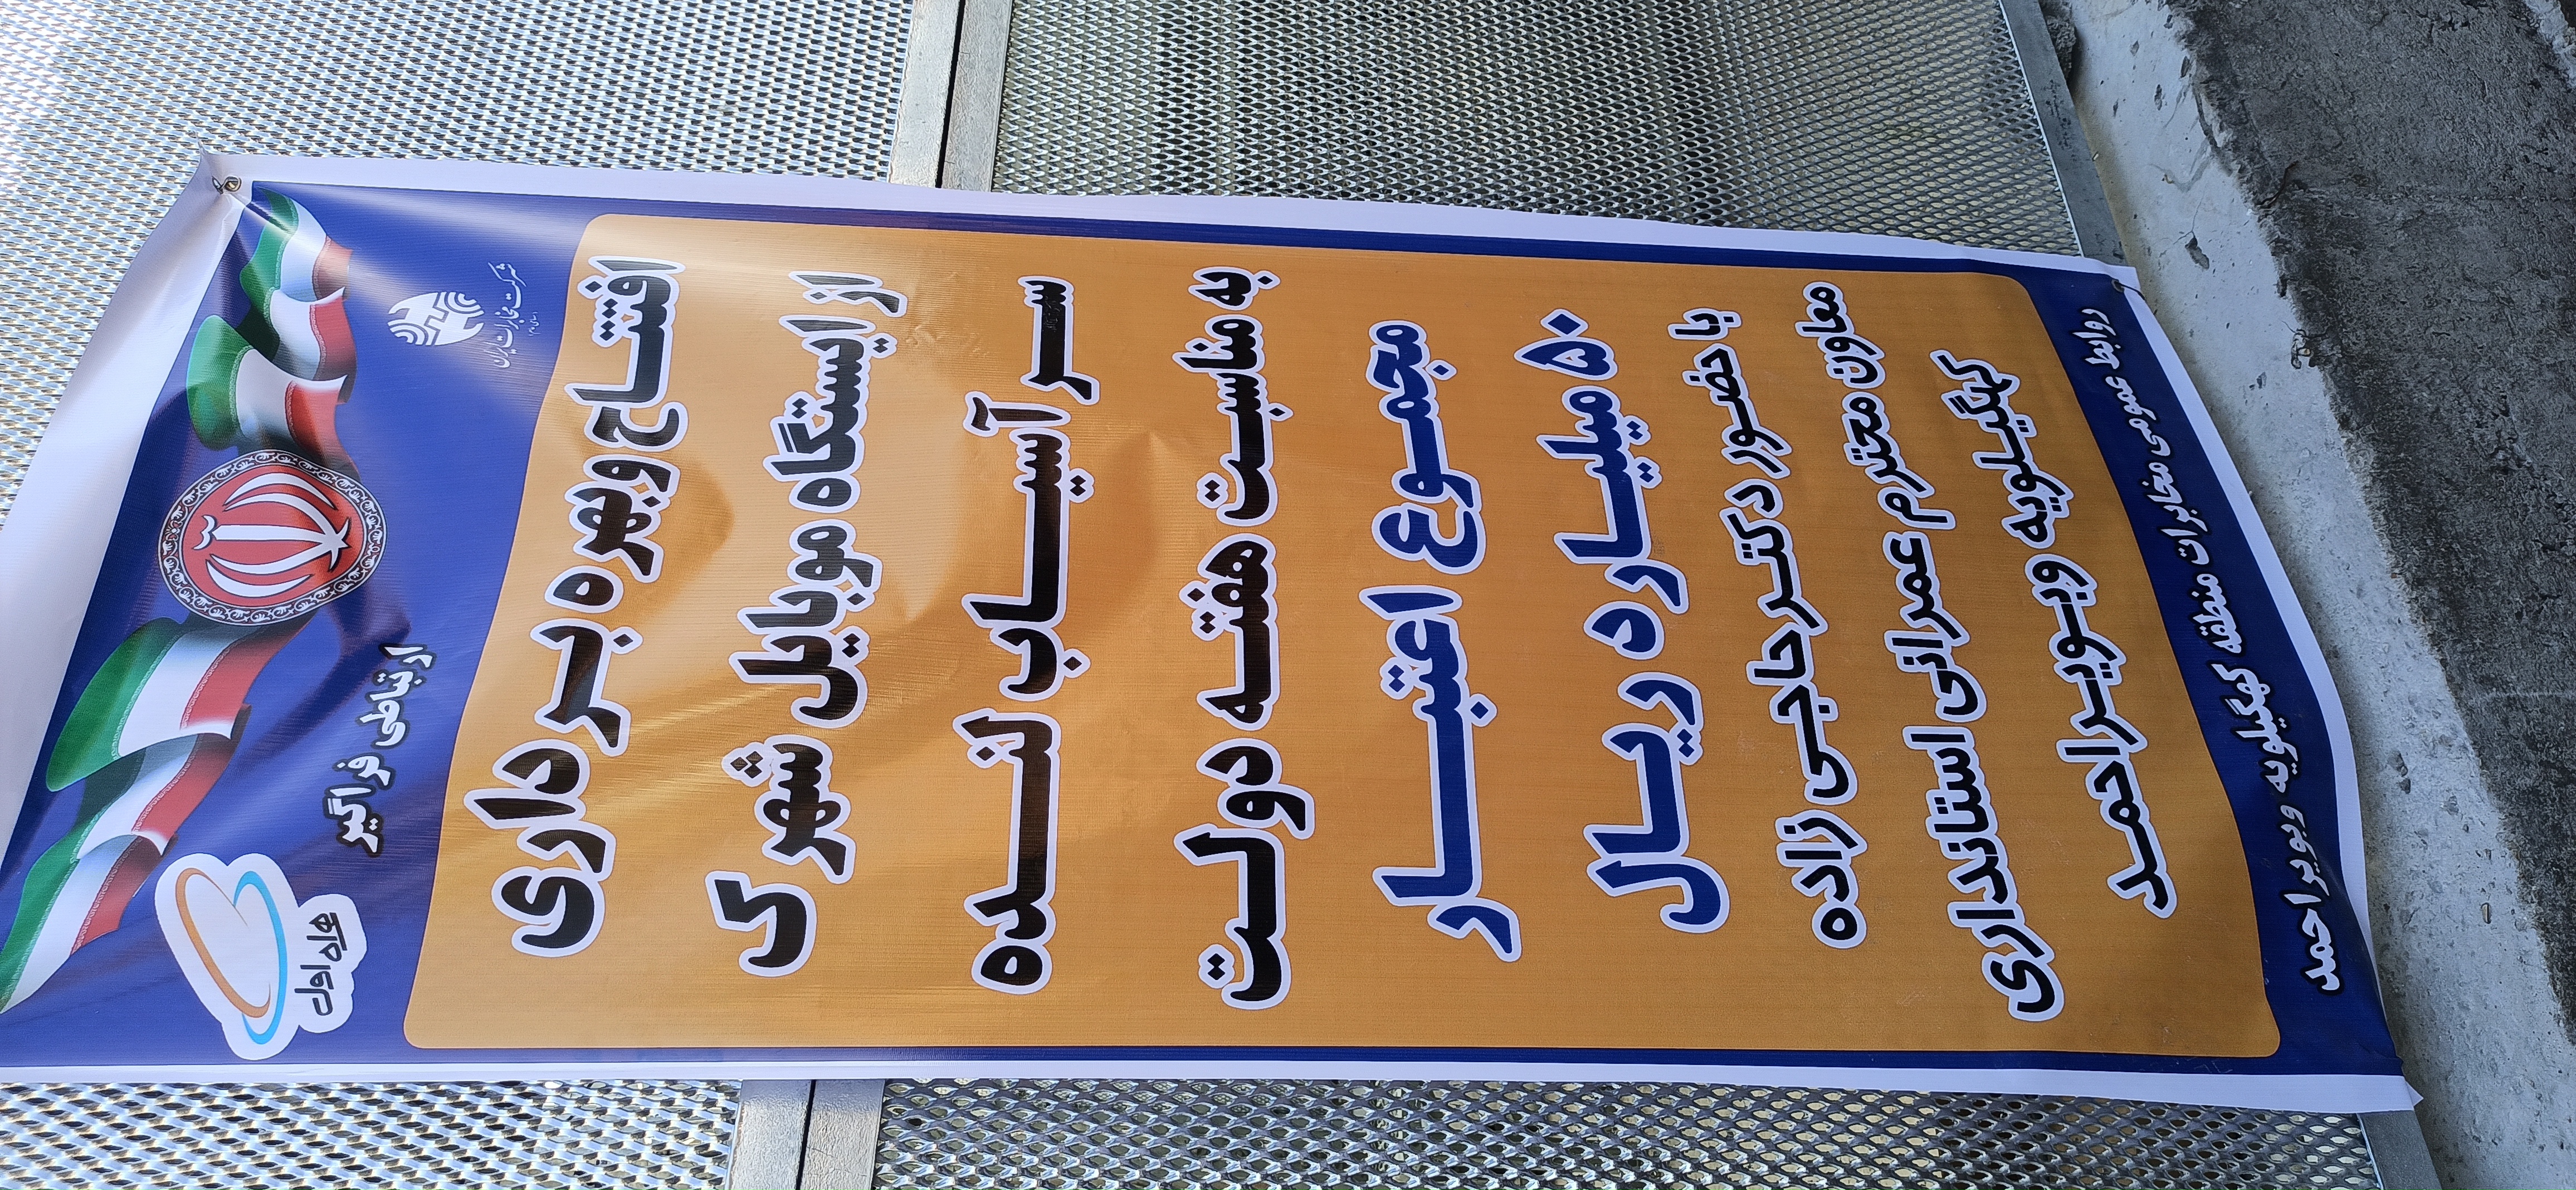 شرکت مخابرات ایران
ارتباطی فراگیر
همراه اول
افتتاح وبهره برداری
از ایستگاه موبایل شهرک
سر آسیاب لنده
به مناسبت هفته دولت
مجموع اعتبار
۵۰ میلیارد ریال
با حضور دکتر حاجی زاده
معاون محترم عمرانی استانداری
کهگیلویه وبویراحمد
روابط عمومی مخابرات منطقه کهگیلویه وبویراحمد